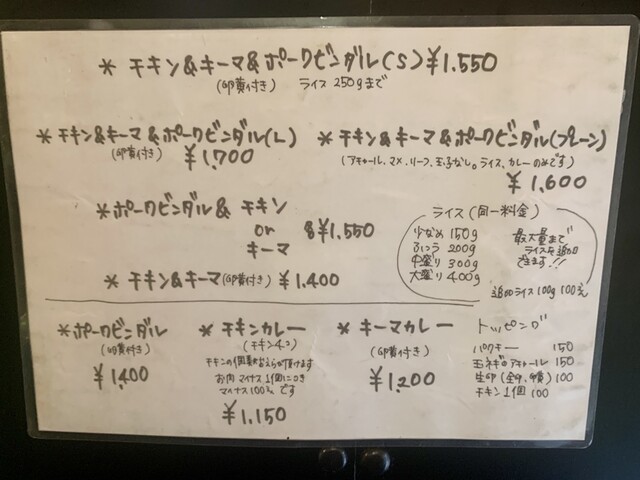 * チキン&キーマ&ポークビンダル(S)¥1.550
(卵黄付き) ライス 250gまで
* チキン&キーマ&ポークビンダル(L)
(卵黄付き) ¥1,700
* チキン&キーマ&ポークビンダル(プレーン)
(アチャール、マメ、リーフ、玉子なし。ライス、カレーのみです)
¥1,600
* ポークビンダル& チキン
or
キーマ
各¥1,550
* チキン&キーマ(卵黄付き) ¥1.400
ライス(同一料金)
少なめ 150g
ふつう 200g
中盛り 300g
大盛り 400g
最大量まで
ライスを追加
できます!!
追加ライス 100g 100えん
* ポークビンダル
(卵黄付き)
¥1400
* チキンカレー
(チキン4コ)
チキンの個数おえらび頂けます
お肉マイナス1個につき
マイナス100えんです
¥1,150
* キーマカレー
(卵黄付き)
¥1,200
トッピング
パクチー 150
玉ネギのアチャール 150
生卵(全卵、卵黄) 100
チキン1個 100